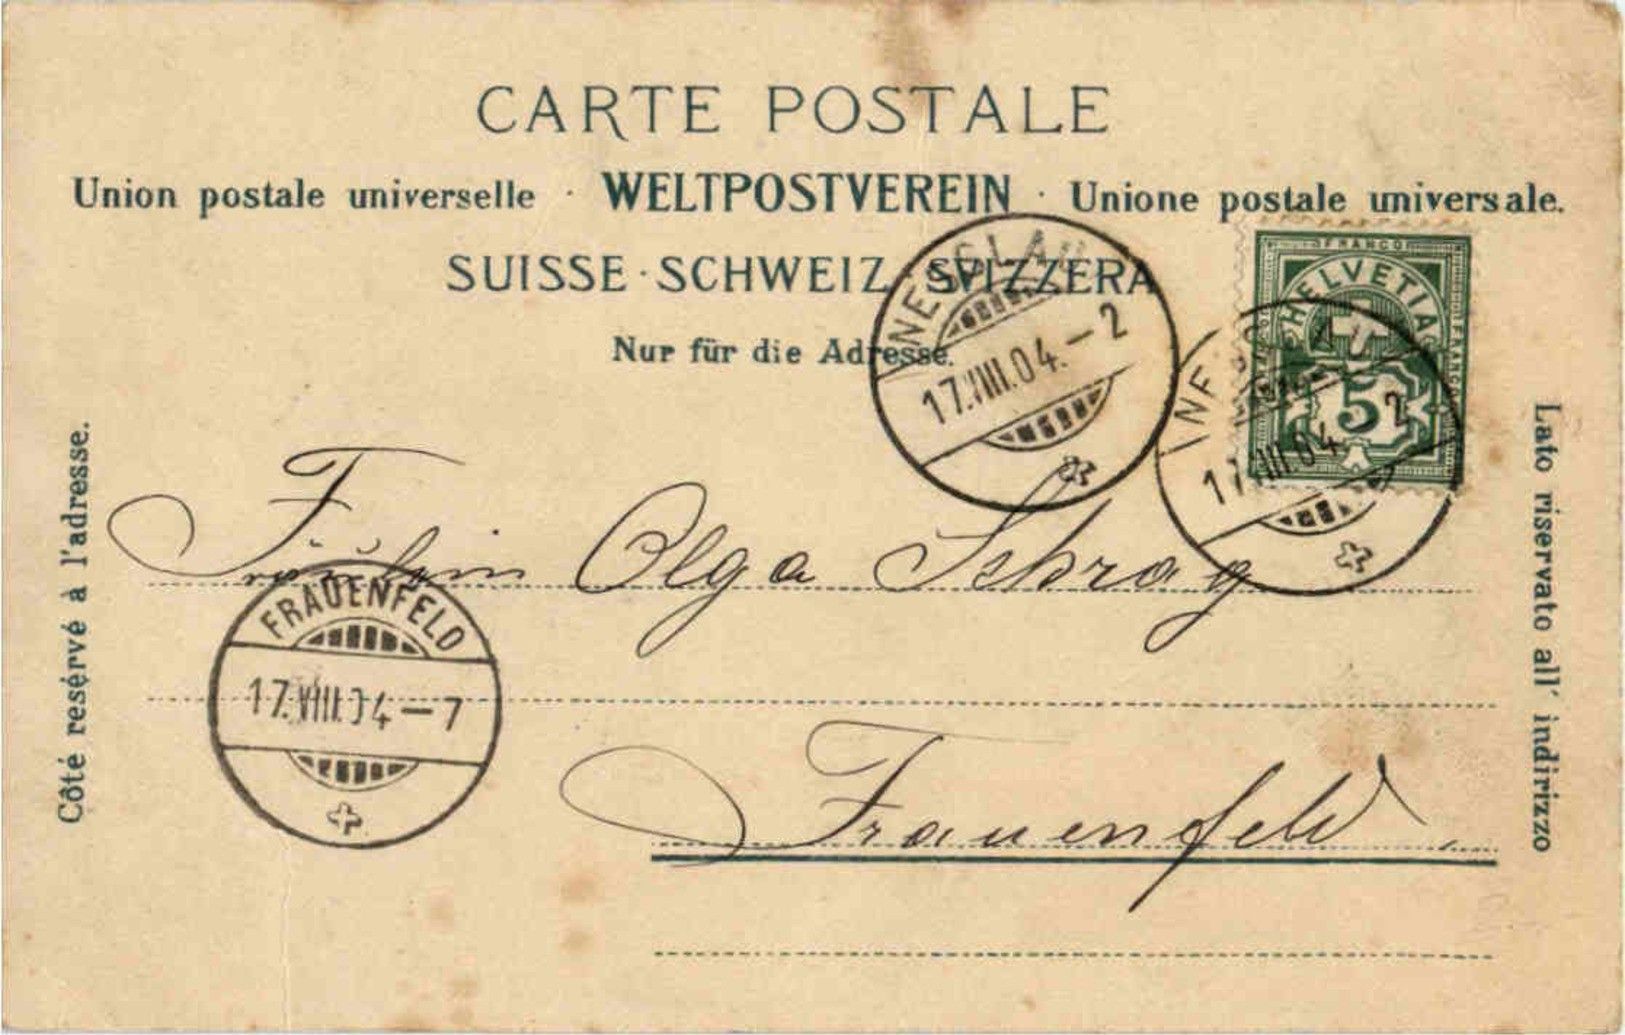 CARTE POSTALE
Union postale universelle · WELTPOSTVEREIN · Unione postale universale.
SUISSE · SCHWEIZ SVIZZERA
Nur für die Adresse.
FRANCO
HELVETIA
5
17.VIII.04.-2
17.VIII.04 2
Côté resérvé à l'adresse.
Lato riservato all' indirizzo
Fräulein Olga Schrag
FRAUENFELD
17.VIII.04-7
Frauenfeld.